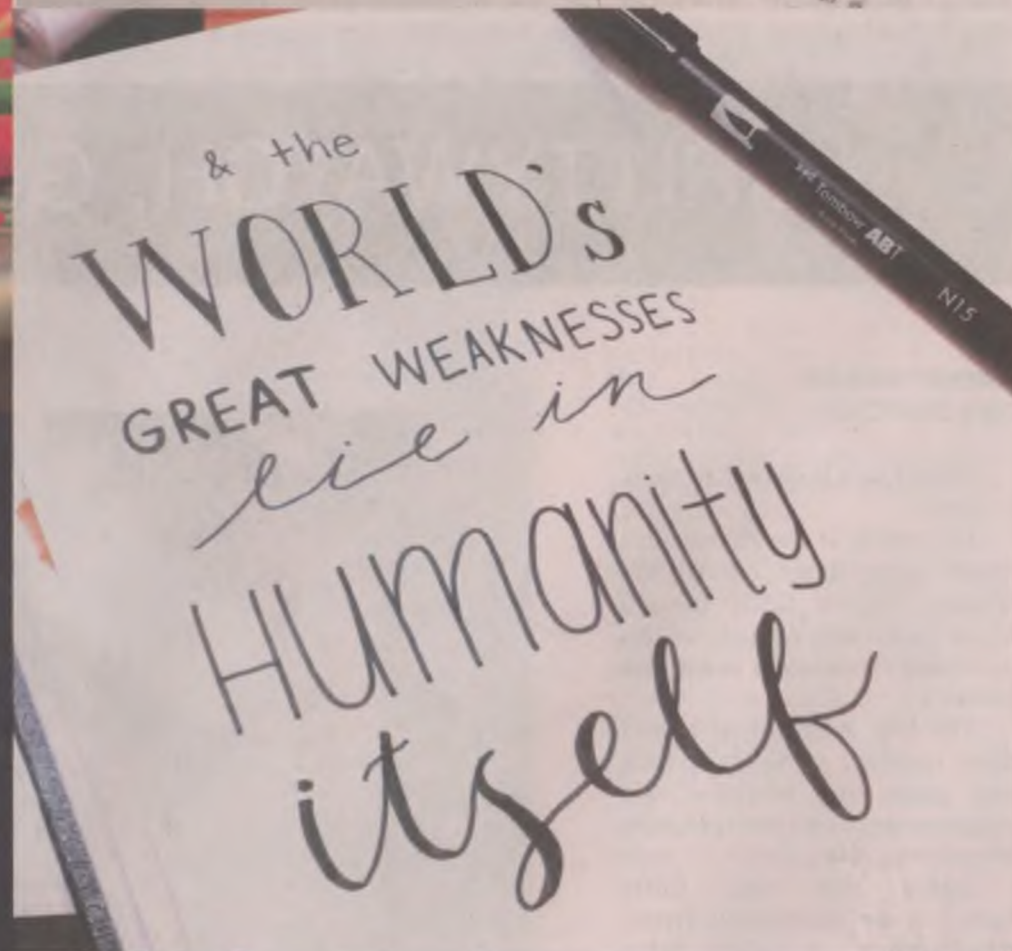 & the
WORLD's
GREAT WEAKNESSES
lie in
Humanity
itself
Tombow ABT
N15